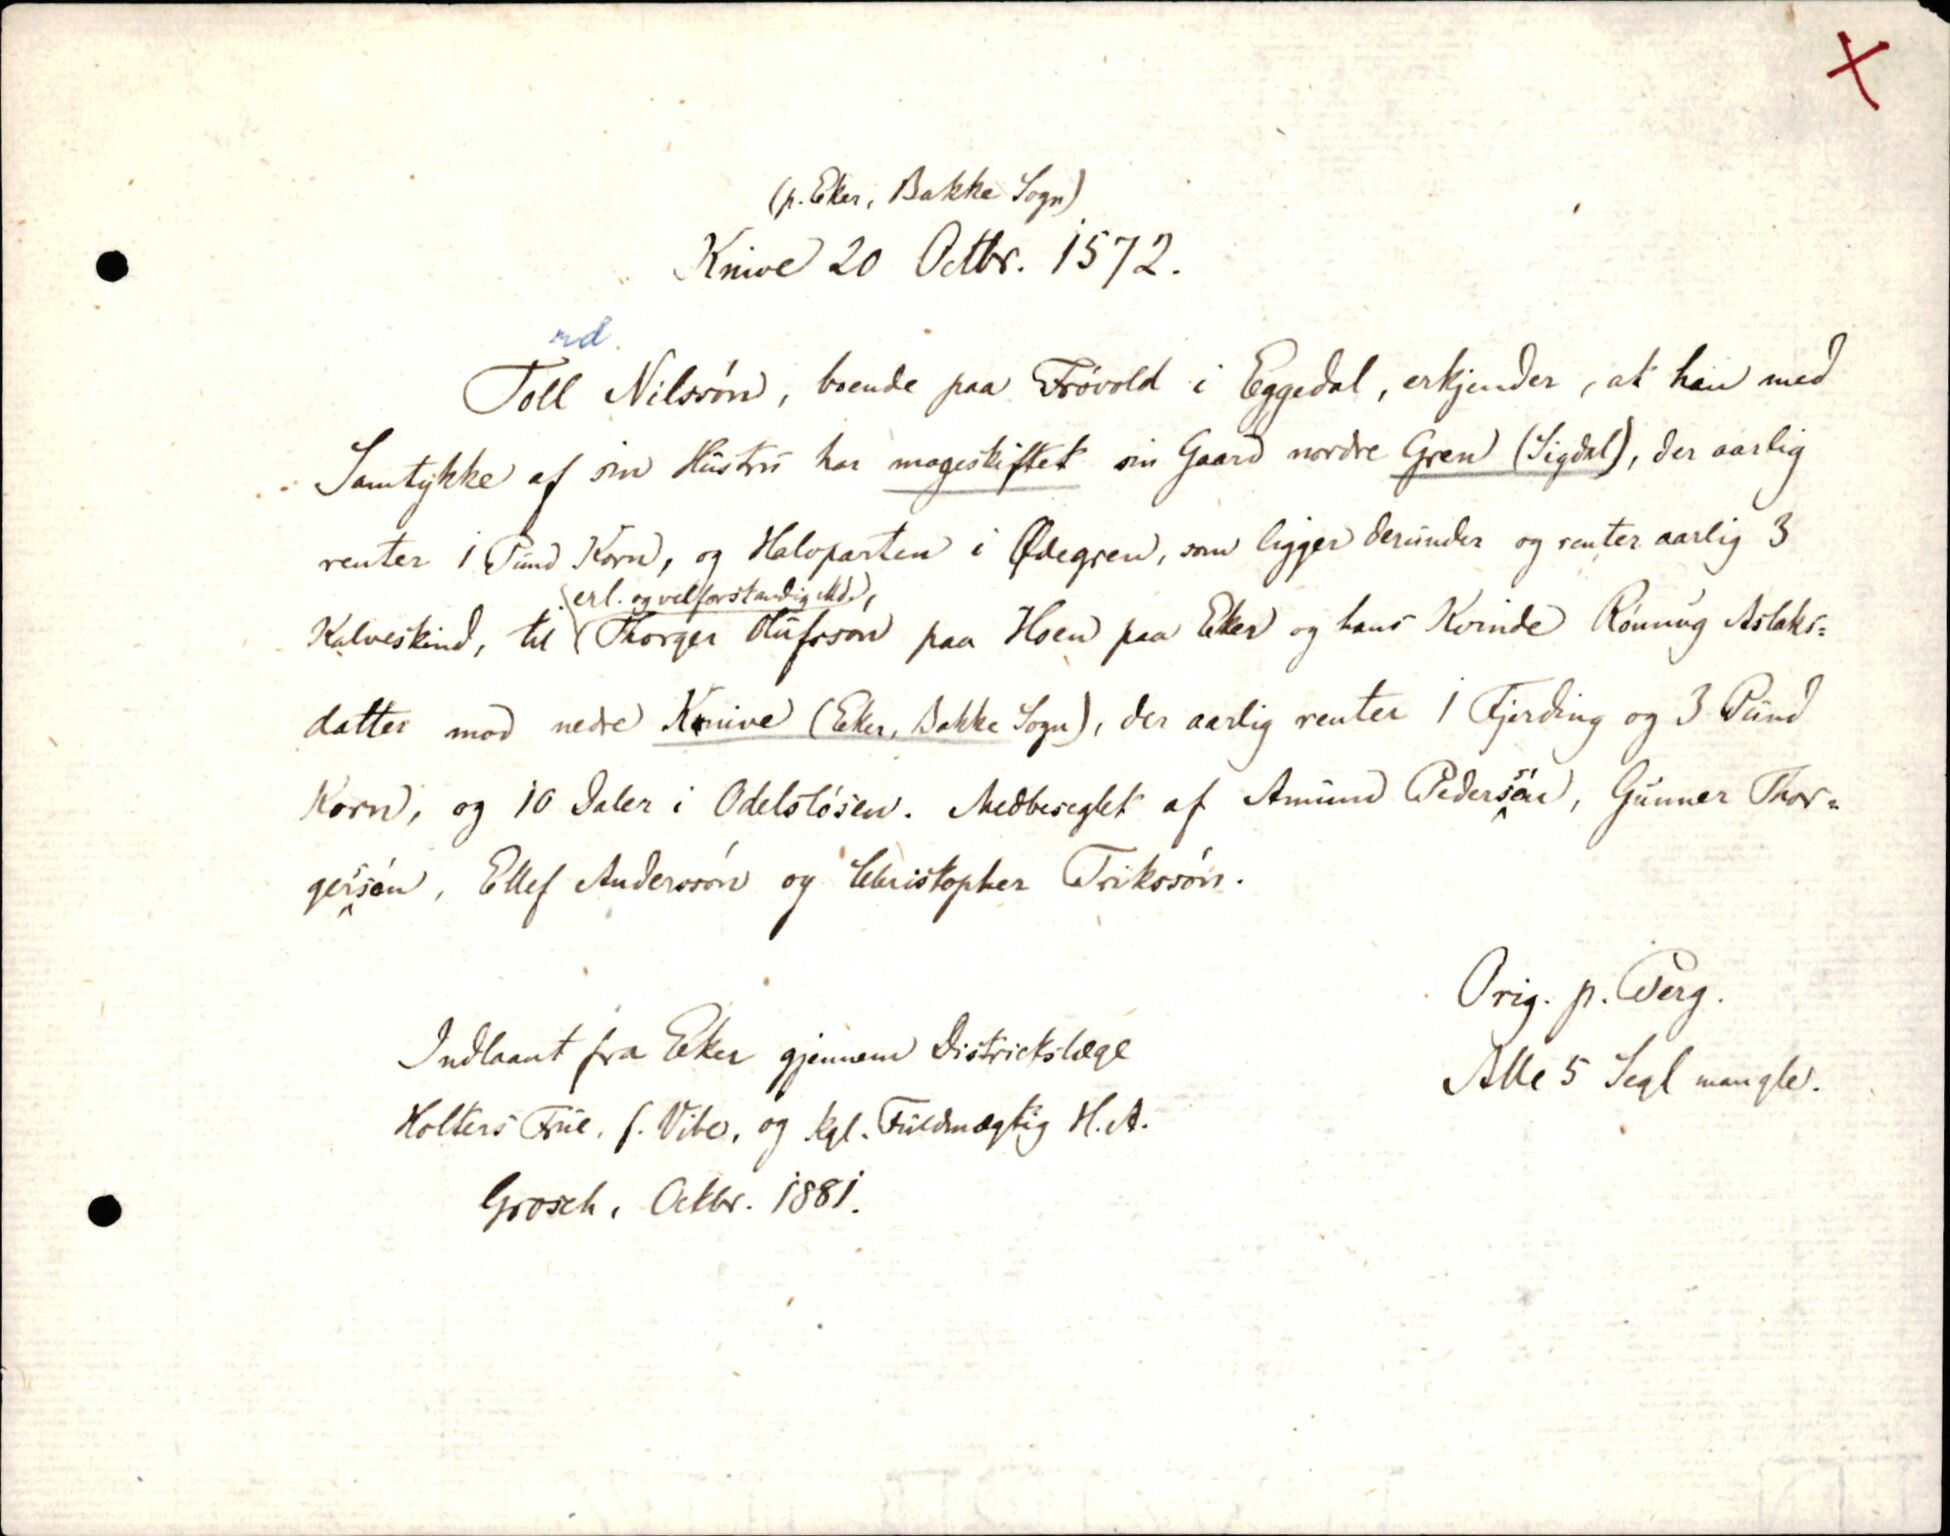 (p. Eker, Bakke Sogn)
Knive 20 Octbr. 1572.
rd.
Toll Nilssön, boende paa Frövold i Eggedal, erkjender, at han med
Samtykke af sin Hustru har mageskiftet sin Gaard nordre Gren (Sigdal), der aarlig
renter 1 Pund Korn, og Halvparten i Ødegren, som ligger derunder og renter aarlig 3
erl. og velforstandig Md.,
Kalveskind, til Thorger Olufsson paa Hoen paa Eker og hans Kvinde Rönnug Aslaks=
datter mod nedre Knive (Eker, Bakke Sogn), der aarlig renter 1 Fjerding og 3 Pund
Korn, og 10 Daler i Odelslösen. Medbeseglet af Amund Pederssön, Gunner Thor=
gerssön, Ellef Anderssön og Christopher Erikssön.
Orig. p. Perg.
Alle 5 Segl mangle.
Indlaant fra Eker gjennem Districtslæge
Holters Frue, f. Vibe, og kgl. Fuldmægtig H. A.
Grosch, Octbr. 1881.